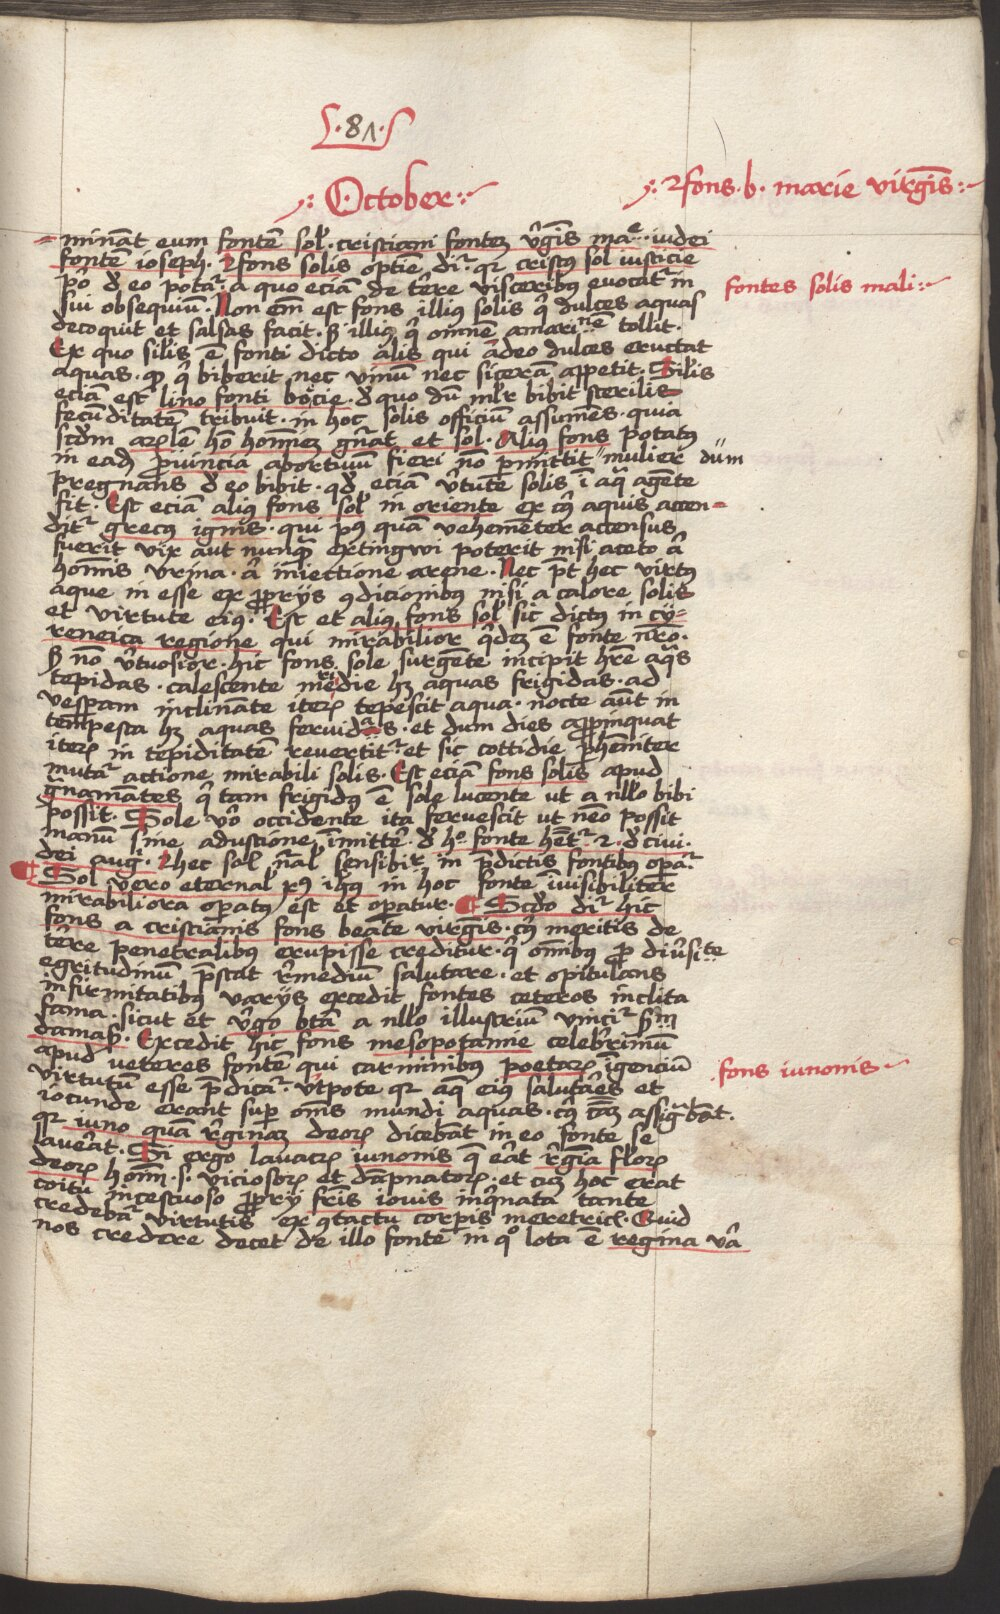 .81.
October
fons b. marie virgīs
=minant eum fontē sol. cristiani fontez v̄gīs maᵉ. iudei
fontē ioseph. fons solis optīe diᷣ qr cristus sol iusticie
p̄o d̄ eo potaᷣ. a quo eciam de tēre visceribus euocat in
fontes solis mali
sui obsequiū. Non em̄ est fons illius solis q̄ dulces aquas
decoquit et salsas facit. S illius q̄ omnē amaritᵈinē tollit.
Ex quo silis ē fonti dicto alis qui adeo dulces eructat
aquas. q̄ biberit nec vinū nec sicerā appetit. Silis
eciā est lino fonti boecie. d̄ quo dū mlr bibit sterilis
fecūditatē tribuit. in hoc solis officiū assumēs. quia
scdm arlem hō hominez gn̄at et sol. Alius fons potatus
in eadē prouincia abortiuū fieri nō pmittit mulier dum
pregnans d̄ eo bibit. qd̄ eciam v̄tute solis ī aq̄ agente
fit. Est eciā alius fons sol in oriente ex cuius aquis accen-
ditᷣ grecus ignis. qui pꝰ quā vehemēter accensus
fuerit vix aut nunq̄ extingwi poterit nisi aceto a͡
hominis vrina. a͡ iniectione arene. Nec pt̄ hec virtus
aque in esse ex propriis ꝯdicionibus nisi a calore solis
et virtute eius. Est et alius fons sol sic dictus in cy=
reneica regione qui mirabilior q̄dez ē fonte nr̄o.
S nō v̄tuosior. hic fons sole surgēte incipit hr̄e aq̄s
tepidas. calescente mēdie hz aquas frigidas. ad
vesperam inclinate iterū tepescit aqua. nocte aūt in
tempesta hz aquas feruidas. et dum dies appinquat
iterū in tepiditatē reuertitᷣ. et sic cottidie phēniter
mutaᷣ actione mirabili solis. Est eciā fons solis apud
gnamātes q̄ tam frigidus ē sole lucente ut a nllo bibi
possit. Sole vō occidente ita feruescit ut nēo possit
manū sine adustione īmitte. d̄ hᵒ fonte hētᷣ. 2. d̄ ciui.
dei aug. hec sol n̄al sensibir in p̄dictis fontibus opaᷣ.
Sol vero eternal xꝰ ihūs in hoc fonte īuisibiliter
mirabiliora opatus est et operatur. Scdo diᷣ hic
fons a cristianis fons beate virgīs. cuius meritis de
tēre penetralibus erupisse creditur. q̄ omibus p diūsitate
egritudinū p̄stat r̄mediū salutare. et opitulans
infirmitatibus varijs excedit fontes ceteros inclita
fama. sicut et v̄go bt̄a a nllo illustriū vinciᷣ sm
damas. Excedit hic fons mesopotanne celebrimū
apud veteres fontē qui carminibus poetarū īgenciū
fons iunonis
virtutū esse p̄dicaᷣ. vtpote qr aq̄ eius salutāes et
iocunde erant sup om̄s mundi aquas. cuius cām assignabāt.
qr iuno quā r̄ginaz deorū dicebāt in eo fonte se
lauerat. Si ergo lauacrū iunonis q̄ erat r̄gīa florū
deorū hoīm .s. viciosorū et dāpnatorū. et cum hoc erat
coitu incestuoso proprij fr̄is iouis inq̄nata tante
credebaᷣ virtutis ex ꝯtactu corpis meretrici. Quid
nos credere decet de illo fonte in qᵒ lota ē regina v̄a